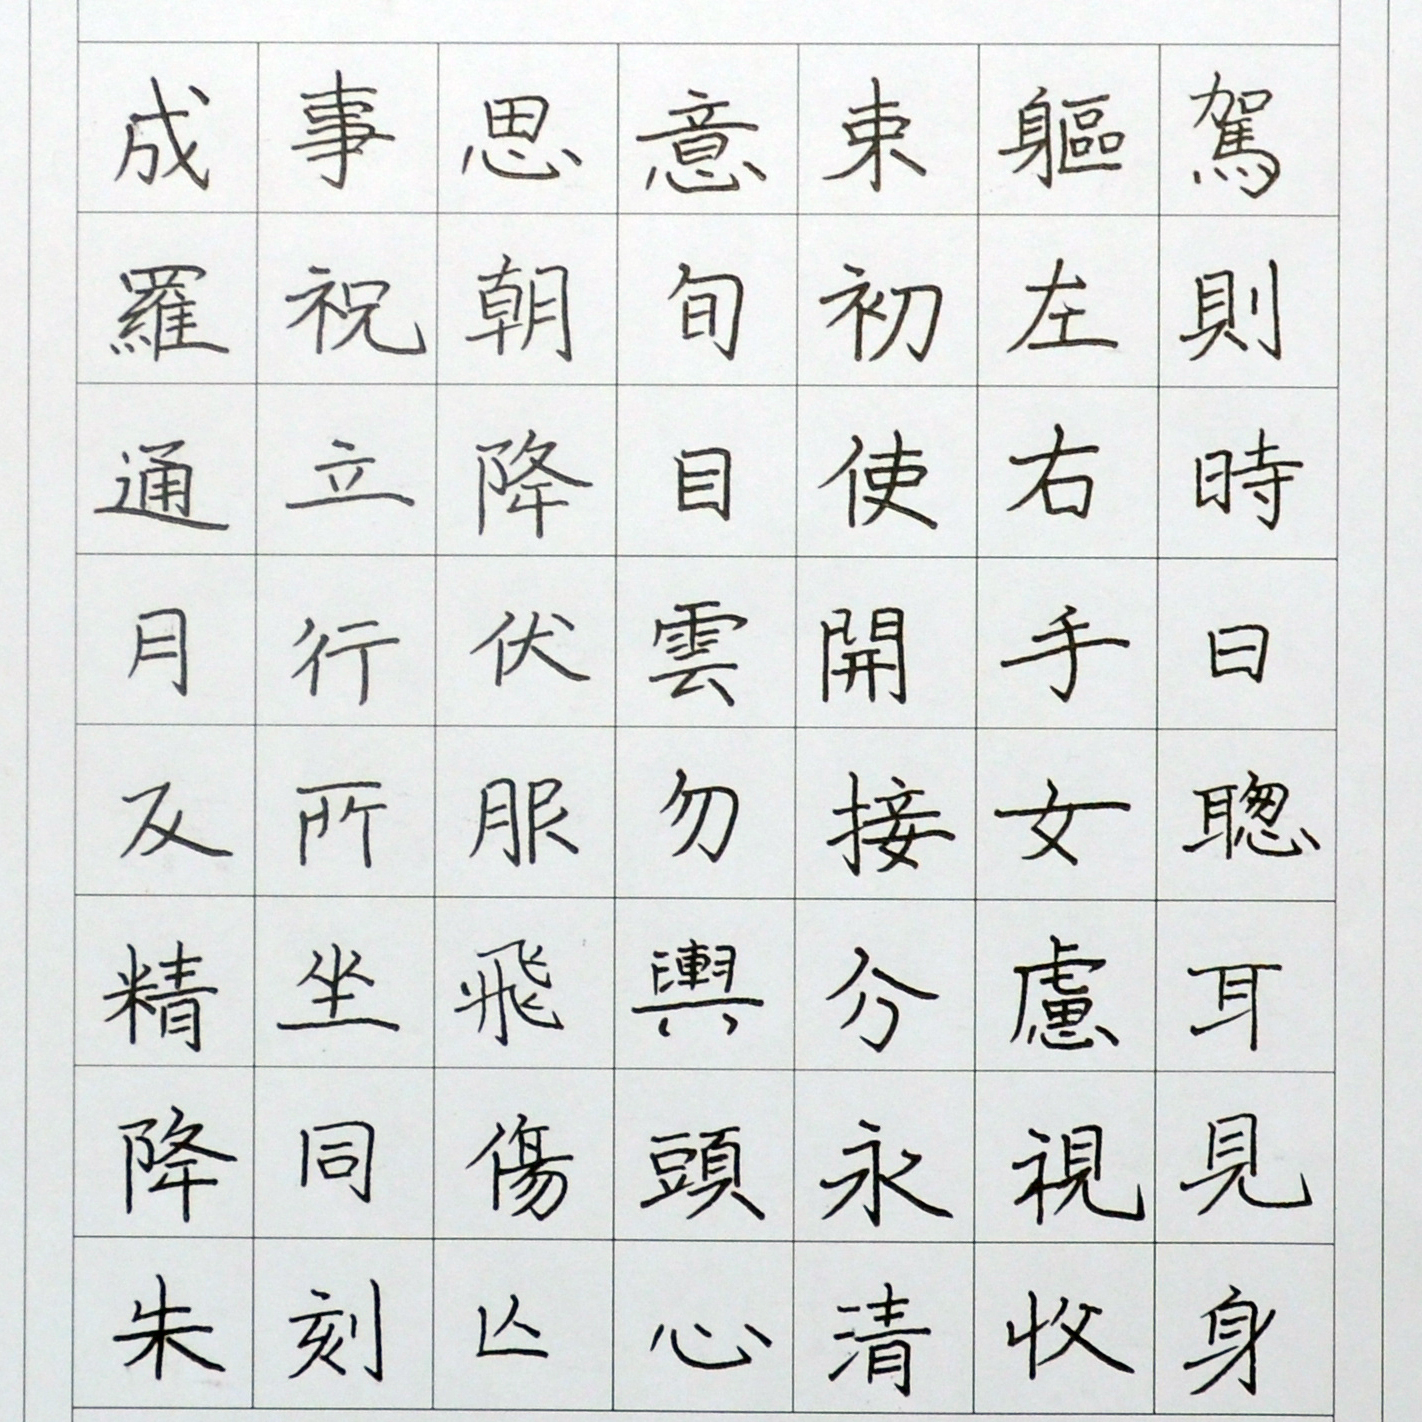 駕則時日聦耳見身
軀左右手女慮視收
束初使開接分永清
意旬目雲勿輿頭心
思朝降伏服飛傷亾
事祝立行所坐同刻
成羅通月反精降朱